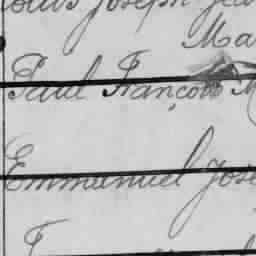 Louis Joseph
Ma
Paul François M
Emmanuel Jose